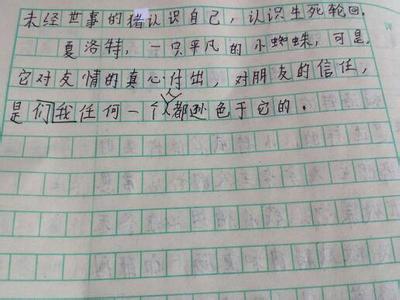 未经世事的猪认识自己，认识生死轮回。
夏洛特，一只平凡的小蜘蛛，可是，
它对友情的真心付出，对朋友的信任，
是们我任何一个人都逊色于它的。